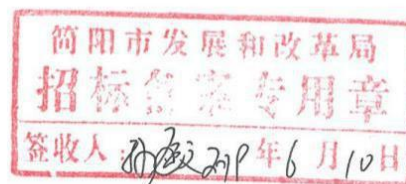 简阳市发展和改革局
招标备案专用章
签收人: 2019年6月10日